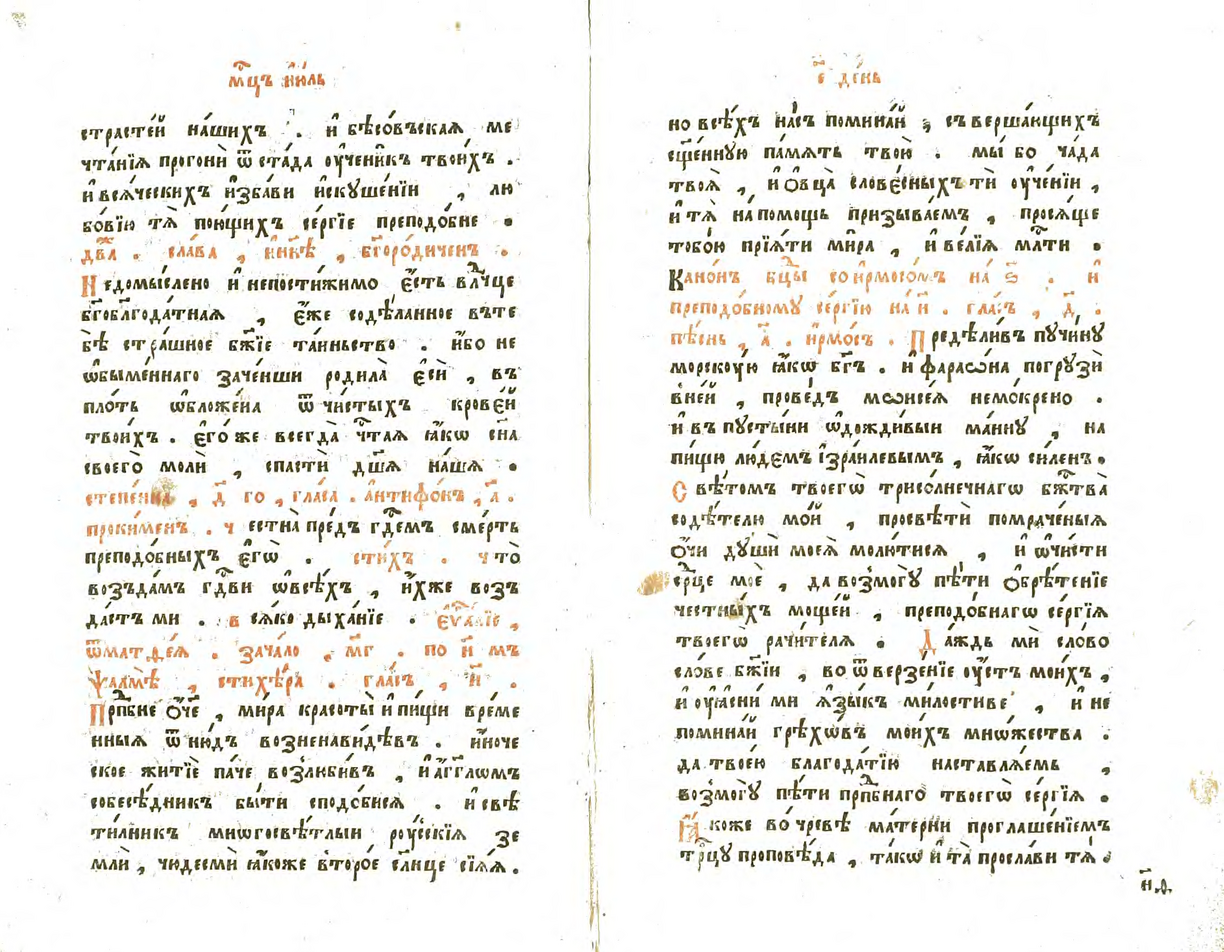 мⷭ҇цъ и҆ю́ль
страсте́й на́шихъ . и҆ бѣсо́въскаѧ ме
чта́нїѧ прогонѝ ѿ ста́да ᲂу҆чени́къ твои́хъ .
и҆ всѧ́ческихъ и҆зба́ви и҆скꙋше́нїи , лю
бо́вїю тѧ̀ пою́щихъ се́ргїе преподо́бне .
два̀ . сла́ва , и҆ ны́нѣ , бг҃оро́диченъ .
Недомы́слено и҆ непости́жимо є҆́сть влⷣчце
бг҃облгⷣа́тнаѧ , є҆́же содѣ́ланное въ те
бѣ̀ стра́шное бж҃їе та́иньство . и҆́бо не
ѡ҆бы́меннаго заче́нши родила̀ є҆сѝ , въ
пло́ть ѡ҆бложе́на ѿ чи́стыхъ крове́й
твои́хъ . є҆го́же всегда̀ чⷭ҇таѧ ꙗ҆́кѡ сн҃а
своего̀ молѝ , спастѝ дш҃ѧ на́шѧ .
степе́нна , д҃ го , гла́са . а҆нтифо́нъ , а҃ .
проки́менъ . честна̀ пре́дъ гдⷭ҇емъ сме́рть
преподо́бныхъ є҆гѡ̀ . сти́хъ . что̀
возда́мъ гдⷭ҇ви ѡ҆ всѣ́хъ , и҆́хже возъ
да́стъ ми . всѧ́ко дыха́нїе . є҆ѵⷢ҇а́лїе ,
ѿ матѳе́ѧ . зача́ло , мг҃ . по н҃ мъ
ѱалмѣ̀ , стихѣ́ра . гла́съ , и҃ .
Прпⷣбне ѻ҆́ч҃е , ми́ра красоты̀ и҆ пи́щи вре́ме
нныѧ ѿню́дъ возненави́дѣвъ . и҆́ноче
ское житїѐ па́че возлюби́въ , и҆ а҆́гг҃лѡмъ
собесѣ́дникъ бы́ти сподо́бисѧ . и҆ свѣ
ти́лникъ мнѡгосвѣ́тлыи рѹ́сскїѧ зе
млѝ , чюдесмѝ ꙗ҆́коже второ́е сл҃нце сїѧ́ѧ .
є҃ де́нь
но всѣ́хъ на́съ помина́й , съверша́ющихъ
сщ҃е́ннꙋю па́мѧть твою̀ . мы́ бо ча́да
твоѧ̀ , и҆ ѻ҆́вца слове́сныхъ ти ᲂу҆че́нїи ,
и҆ тѧ̀ на по́мощь призыва́емъ , просѧ́ще
тобо́ю прїѧ́ти ми́ра , и҆ ве́лїѧ млⷭ҇ти .
Кано́нъ бц҃ы со и҆рмосо́мъ на ѕ҃ . и҆
преподо́бномꙋ се́ргїю на и҃ . гла́съ , д҃ .
пѣ́снь , а҃ . и҆рмо́съ . Предѣ́ливъ пꙋчи́нꙋ
морскоую ꙗ҆́кѡ бг҃ъ . и҆ фараѡ́на погрꙋзѝ
в не́й , прове́дъ мѡѝсе́ѧ немо́крено .
и҆ в пꙋсты́ни ѡ҆дожди́выи ма́ннꙋ , на
пи́щю лю́демъ і҆зра́илевымъ , ꙗ҆́кѡ си́ленъ .
Свѣ́томъ твоегѡ̀ трисо́лнечнагѡ бжⷭ҇тва̀
содѣ́телю мо́й , просвѣтѝ помраче́ныѧ
ѻ҆́чи дꙋшѝ моеѧ̀ молю́тисѧ , и҆ ѡ҆чи́сти
се́рⷣце моѐ , да возмогꙋ̀ пѣ́ти ѻ҆брѣ́тенїе
честны́хъ моще́й , преподо́бнагѡ се́ргїѧ
твоегѡ̀ рачи́телѧ . Да́ждь мѝ сло́во
сло́ве бж҃їи , во ѿверзе́нїе ᲂу҆́стъ мои́хъ ,
и҆ ᲂу҆ѧснѝ ми ꙗ҆зы́къ ми́лостиве , и҆ не
помина́й грѣхѡ́въ мои́хъ мнѡ́жества .
да твое́ю благода́тїю наставлѧ́емь ,
возмогꙋ̀ пѣ́ти прпⷣбнаго твоегѡ̀ се́ргїѧ .
Ꙗ҆́коже во чре́вѣ ма́терни проглаше́нїемъ
трⷪ҇цꙋ проповѣ́да , та́кѡ и҆ та̀ просла́ви тѧ̀ .
н҃д